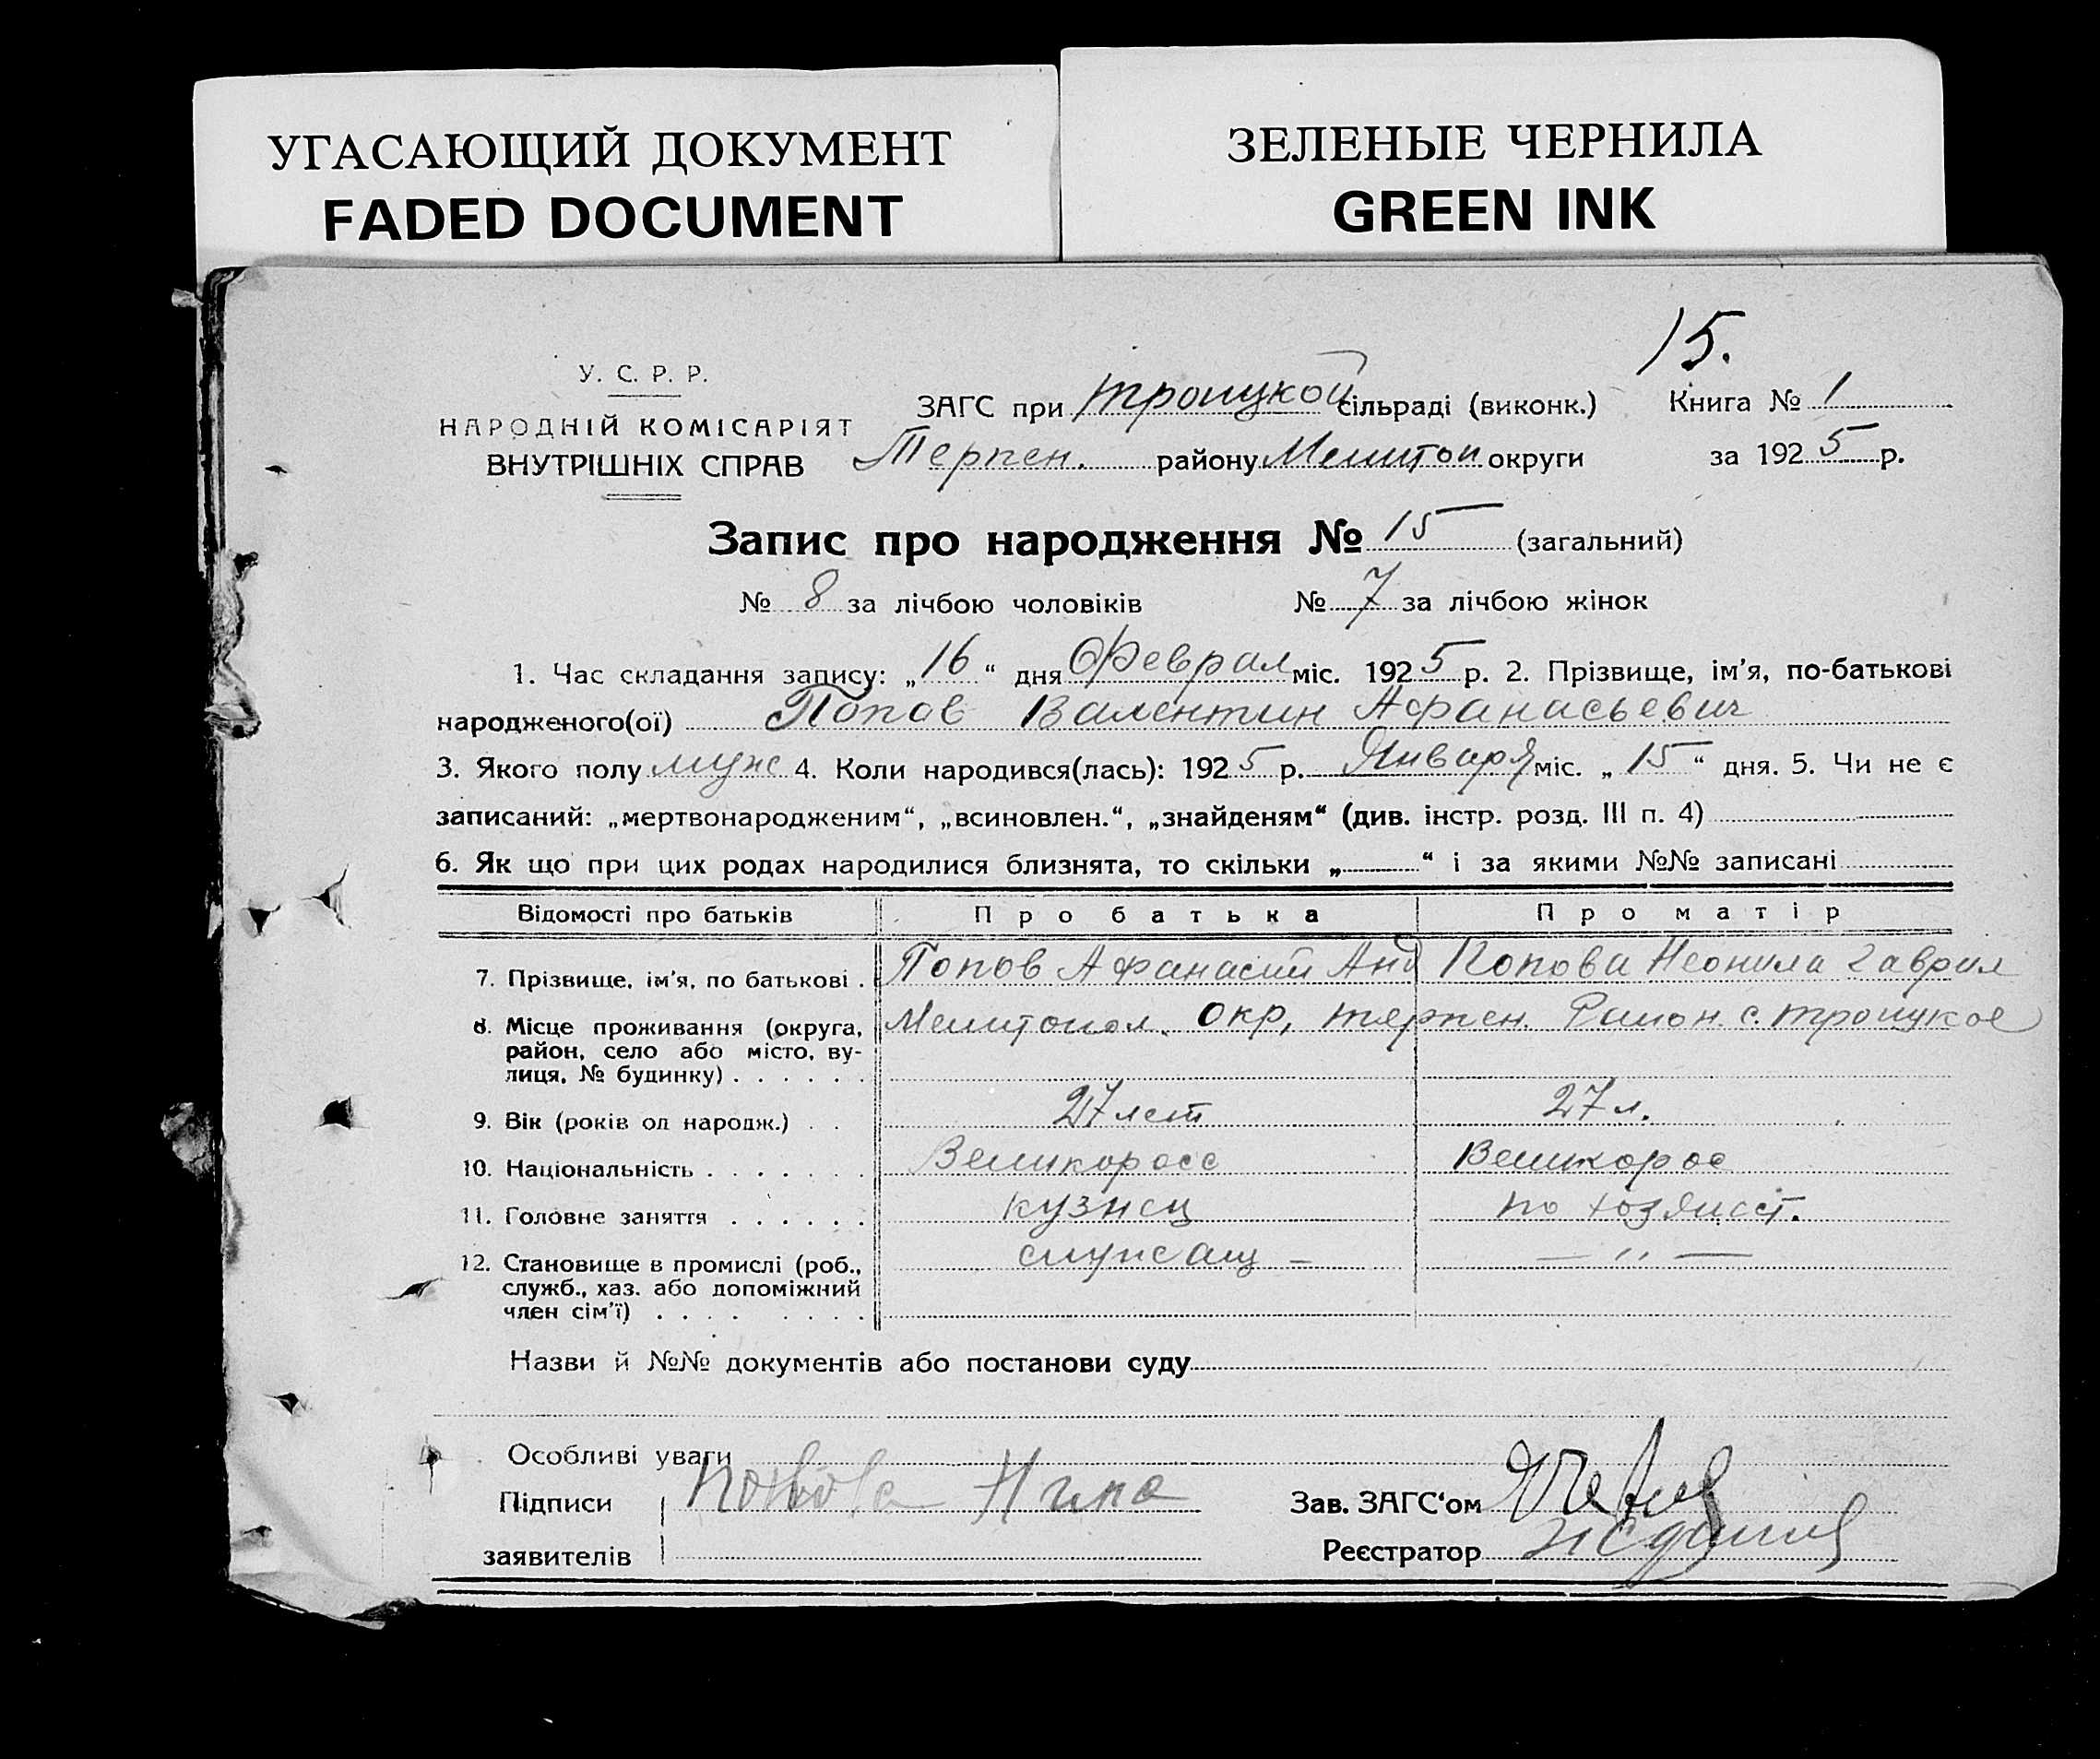 УГАСАЮЩИЙ ДОКУМЕНТ
FADED DOCUMENT
ЗЕЛЕНЫЕ ЧЕРНИЛА
GREEN INK
15.
У. С. Р. Р.
НАРОДНІЙ КОМІСАРІЯТ
ВНУТРІШНІХ СПРАВ
ЗАГС при Троицкой сільраді (виконк.) Книга № 1
Терпен. району Мелитоп округи за 1925 р.
Запис про народження № 15 (загальний)
№ 8 за лічбою чоловіків № 7 за лічбою жінок
1. Час складання запису: „16“ дня Феврал міс. 1925 р. 2. Прізвище, ім'я, по-батькові
народженого(ої) Попов Валентин Афанасьевич
3. Якого полу муж 4. Коли народився(лась): 1925 р. Января міс. „15“ дня. 5. Чи не є
записаний: „мертвонародженим“, „всиновлен.“, „знайденям“ (див. інстр. розд. III п. 4)
6. Як що при цих родах народилися близнята, то скільки „ “ і за якими №№ записані
Відомості про батьків Про батька Про матір
7. Прізвище, ім'я, по батькові . Попов Афанасий Анд Попова Неонила Гаврил
8. Місце проживання (округа, Мелитопол. Окр, терпен. Район. с. троицкое
район, село або місто, ву-
лиця, № будинку) . . . . . .
9. Вік (років од народж.) . . 27 лет 27 л.
10. Національність . . . . . . . Великоросс Великорос
11. Головне заняття . . . . . . кузнец по хозяйст.
12. Становище в промислі (роб., служащ – — „ —
служб., хаз. або допоміжний
член сім'ї) . . . . . . . .
Назви й №№ документів або постанови суду
Особливі уваги
Підписи Попова Нина Зав. ЗАГС‘ом
заявителів Реєстратор